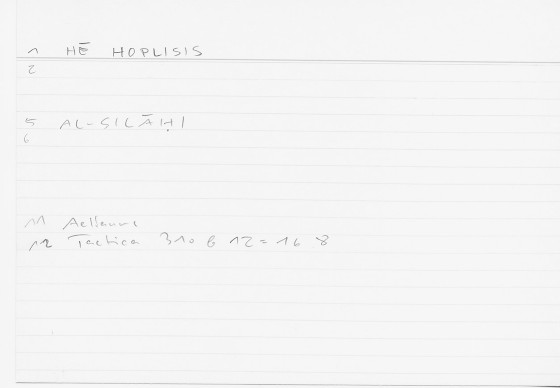 1 HĒ HOPLISIS
2
5 AL-SILĀḤI
6
11 Aelianus
12 Tactica 310 6 12 = 16 8